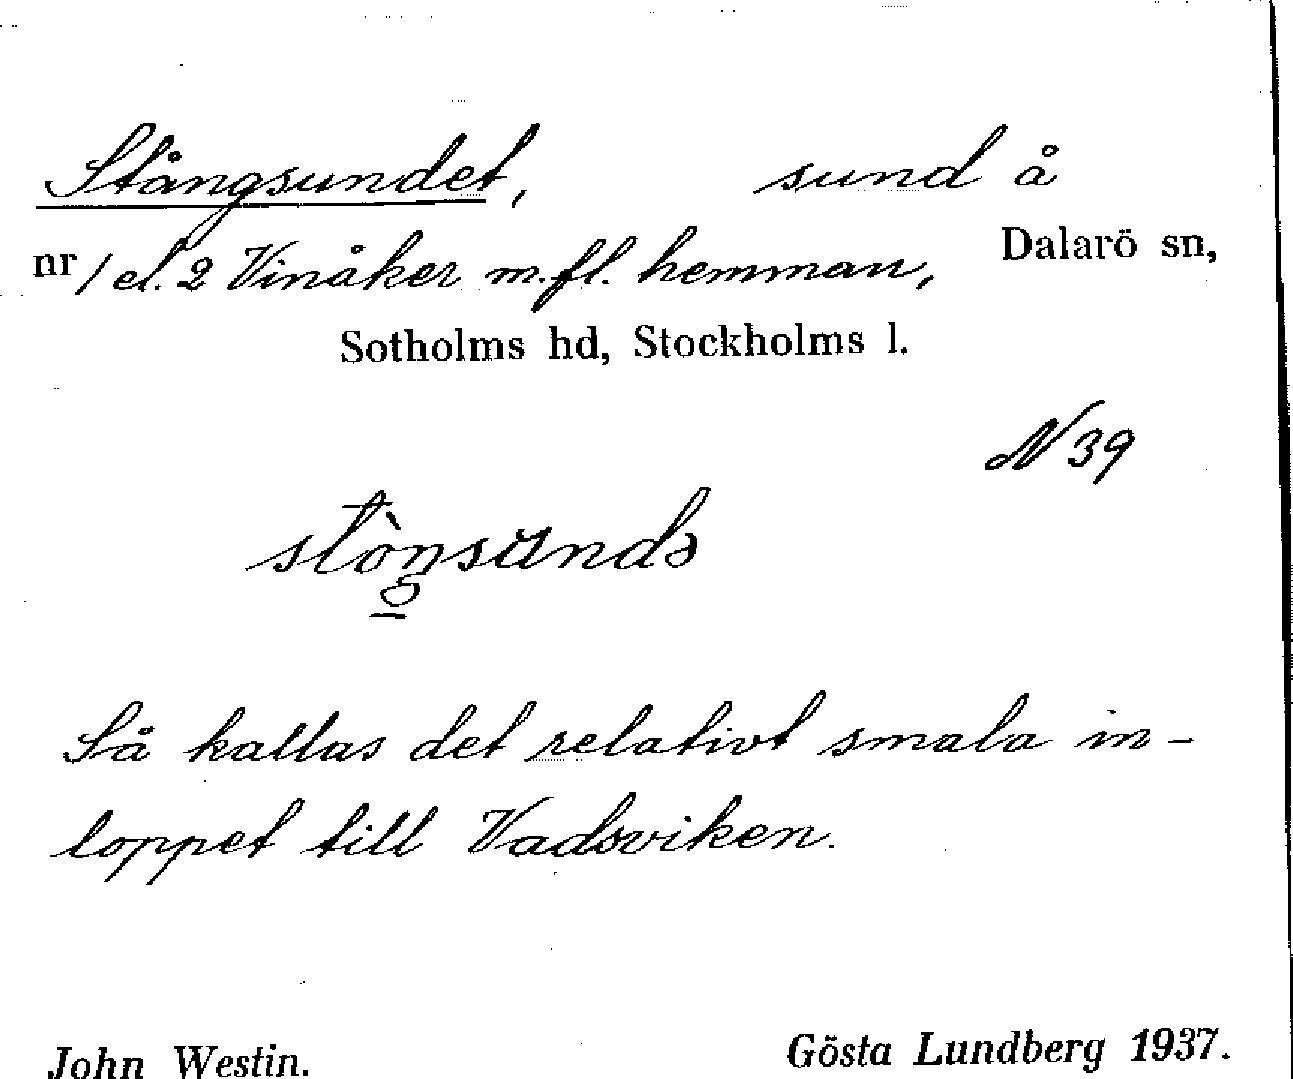 Stångsundet, sund å
nr 1 el. 2 Vinåker m.fl. hemman, Dalarö sn,
Sotholms hd, Stockholms l.
N 39
stòŋsundə
Så kallas det relativt smala in-
loppet till Vadsviken.
John Westin. Gösta Lundberg 1937.